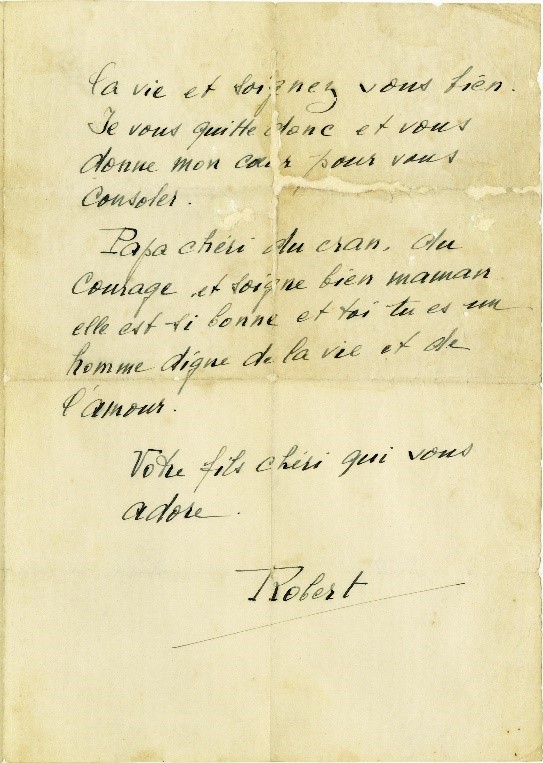 la vie et soignez vous bien.
Je vous quitte donc et vous
donne mon cœur pour vous
consoler.
Papa chéri du cran, du
courage, et soigne bien maman
elle est si bonne et toi tu es un
homme digne de la vie et de
l'amour.
Votre fils chéri qui vous
adore.
Robert